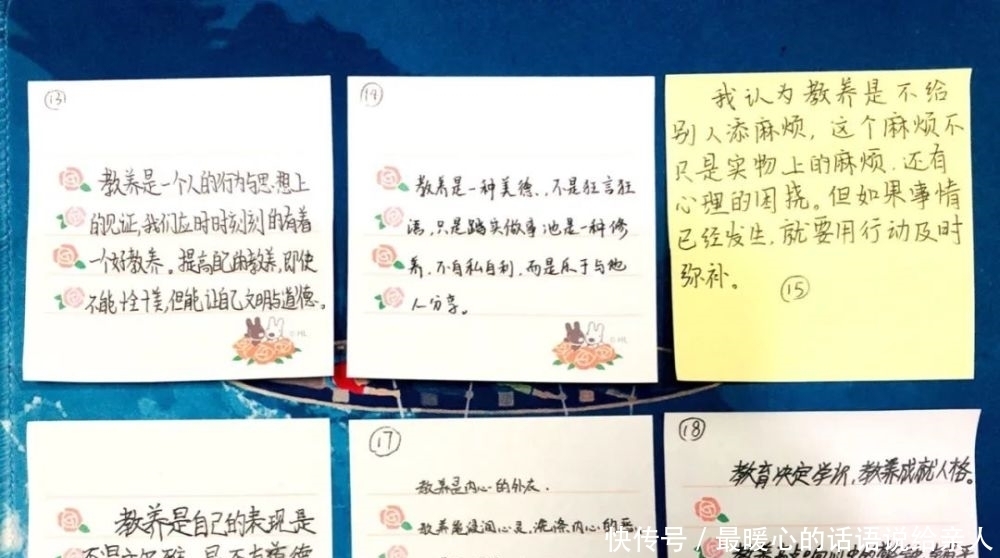 13
教养是一个人的行为与思想上
的见证,我们应时时刻刻的有着
一个好教养。提高自己的教养,即使
不能十全十美,但能让自己文明与道德。
© HL
14
教养是一种美德.,不是狂言狂
语,只是踏实做事也是一种修
养,不自私自利,而是乐于与他
人分享。
© HL
我认为教养是不给
别人添麻烦,这个麻烦不
只是实物上的麻烦,还有
心理的困挠。但如果事情
已经发生,就要用行动及时
弥补。
15
教养是自己的表现是
17
教养是内心的外衣.
教养能浸润心灵,洗涤内心的
18
教育决定学识,教养成就人格。
快传号 / 最暖心的话语说给亲人